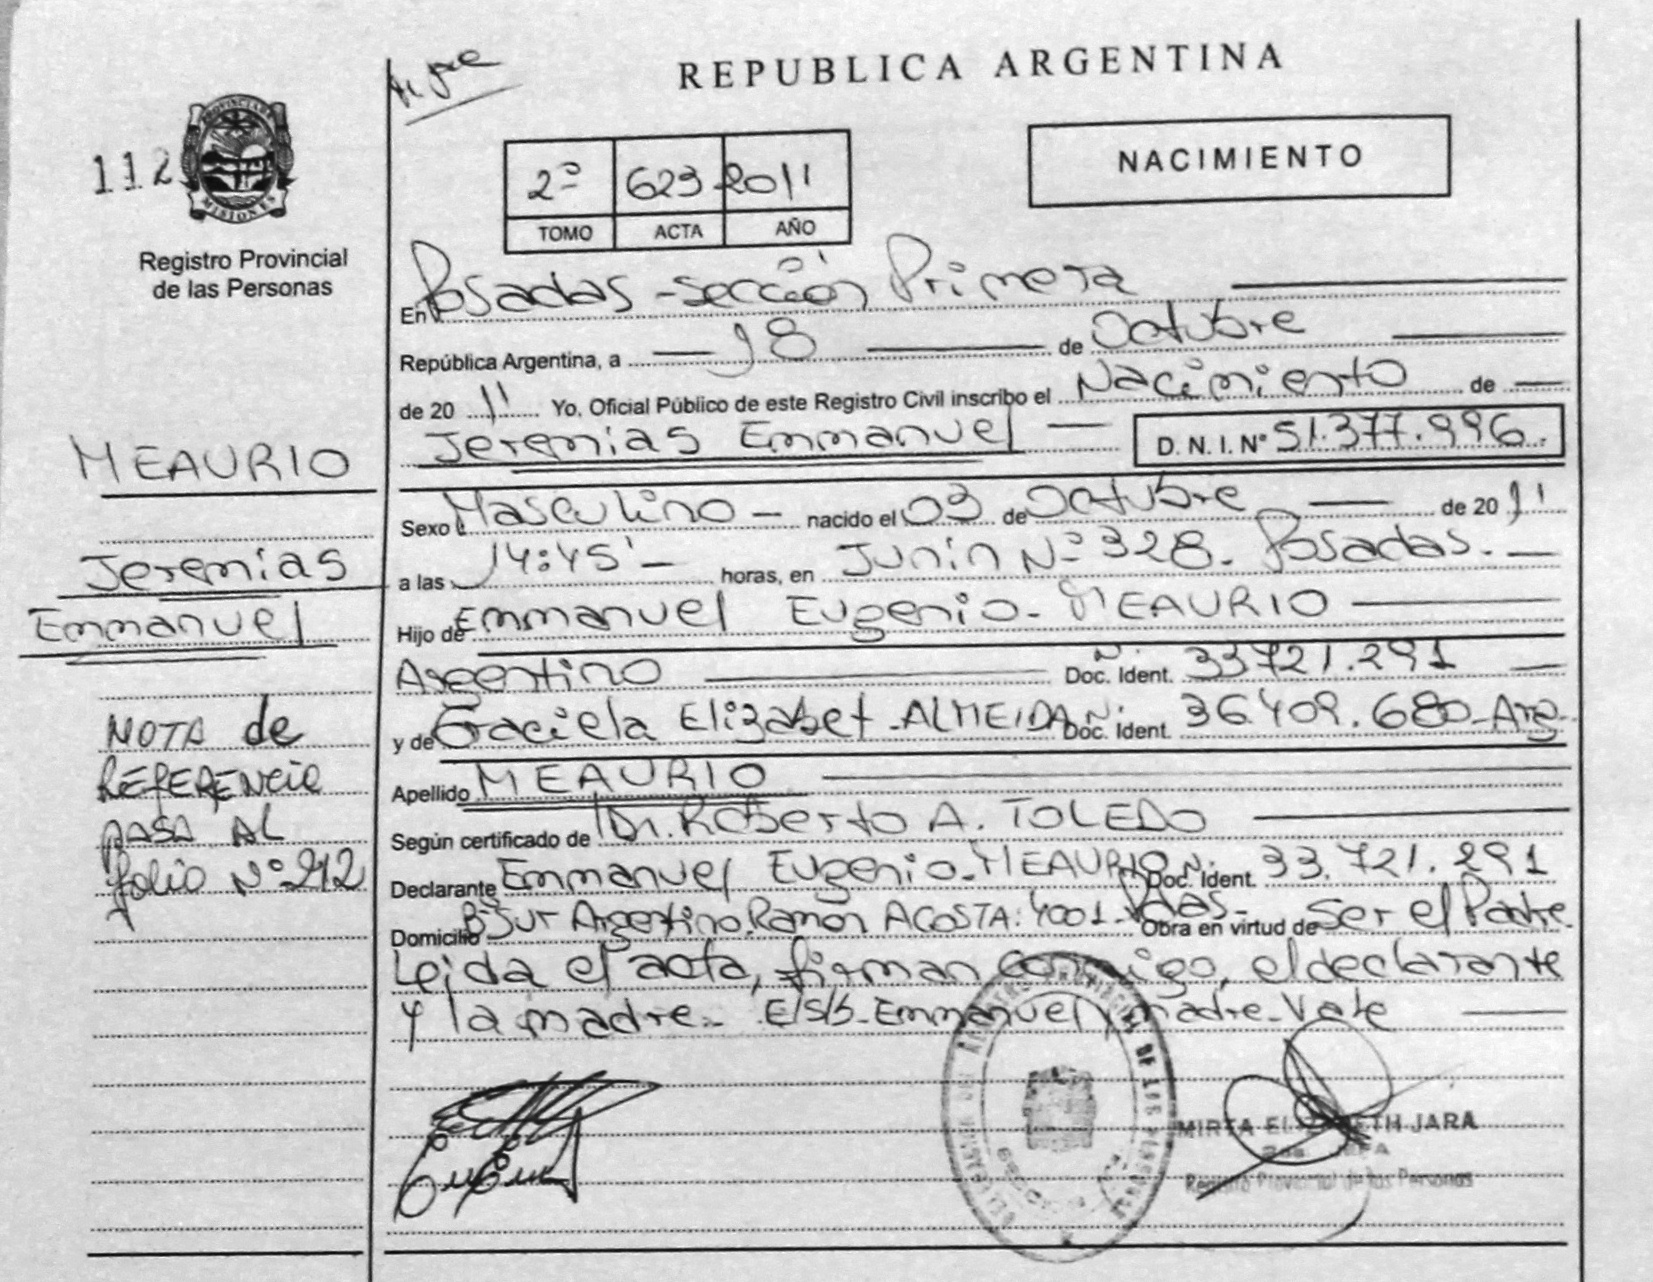 REPUBLICA ARGENTINA
112
PROVINCIA DE MISIONES
Registro Provincial
de las Personas
2º 623 2011
TOMO ACTA AÑO
NACIMIENTO
En Posadas - sección Primera
República Argentina, a 18 de Octubre
de 20 11 Yo, Oficial Público de este Registro Civil inscribo el Nacimiento de
Jeremias Emmanuel D. N. I. Nº 51.377.996.
MEAURIO
Jeremias
Emmanuel
Sexo Masculino - nacido el 03 de Octubre de 20 11
a las 14:45' horas, en Junín Nº 328. Posadas.
Hijo de Emmanuel Eugenio - MEAURIO
Argentino Doc. Ident. 33721.291
y de Graciela Elizabet - ALMEIDA Doc. Ident. 36.409.680 - Arg.
NOTA de
REFERENCIA
PASA AL
folio Nº 212
Apellido MEAURIO
Según certificado de Dr. Roberto A. TOLEDO
Declarante Emmanuel Eugenio - MEAURIO Doc. Ident. 33.721.291
Domicilio Bº Sur Argentino. Ramón ACOSTA: 4001 - Pdas - Obra en virtud de Ser el Padre
Leida el acta, firman conmigo, el declarante
y la madre. E/S/b - Emmanuel y madre - Vale
MIRTA ELIZABETH JARA
Registro Provincial de las Personas